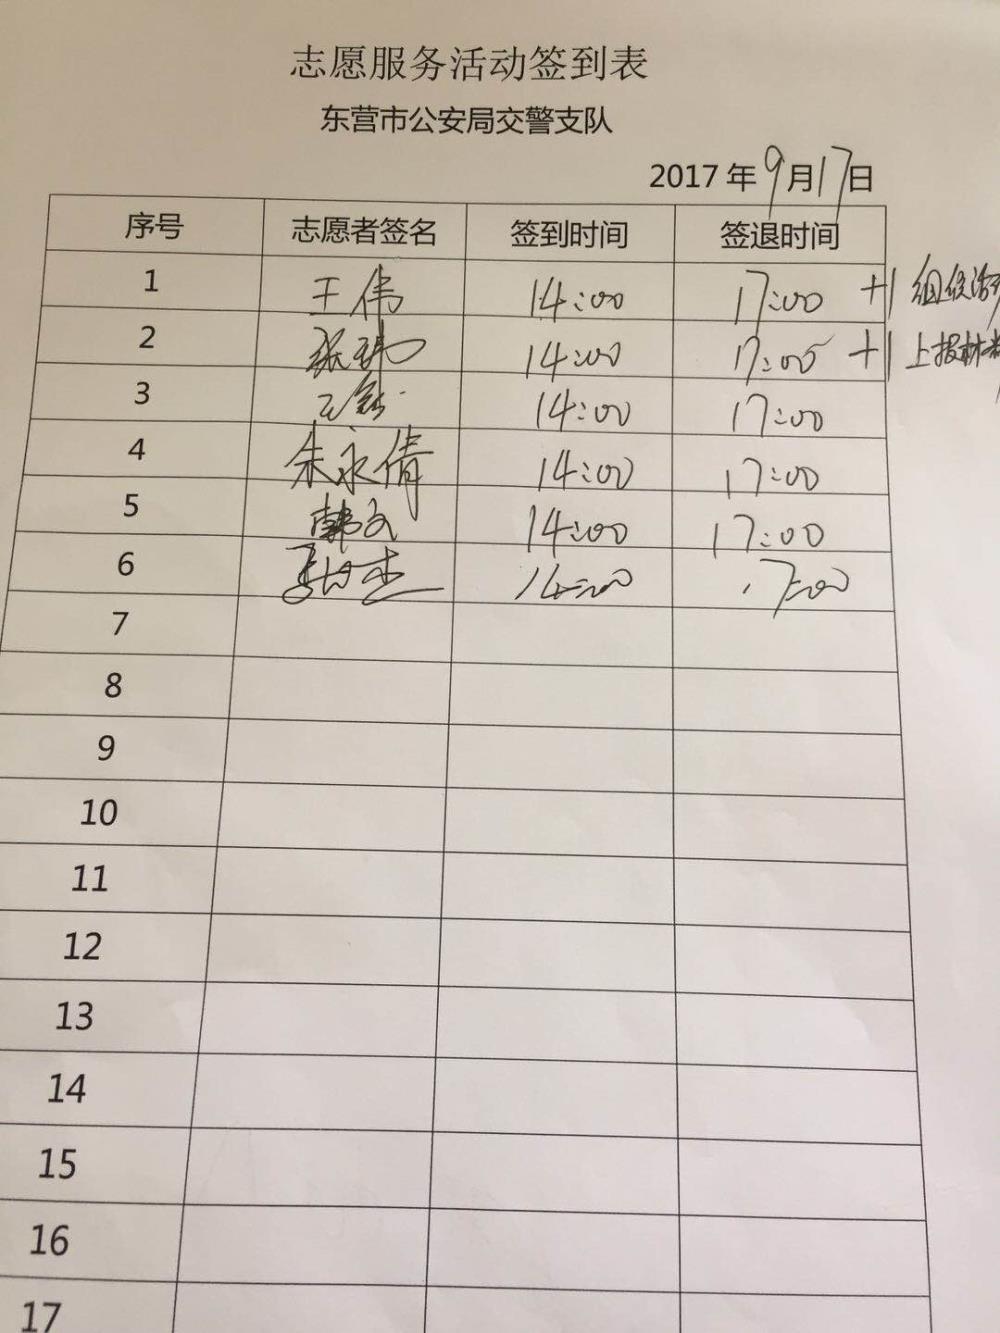 志愿服务活动签到表
东营市公安局交警支队
2017年9月17日
序号 志愿者签名 签到时间 签退时间
1 王伟 14:00 17:00 +1 组织活
2 张 14:00 17:00 +1 上报材料
3 王 14:00 17:00
4 朱永倩 14:00 17:00
5 韩文 14:00 17:00
6 14:00 17:00
7
8
9
10
11
12
13
14
15
16
17